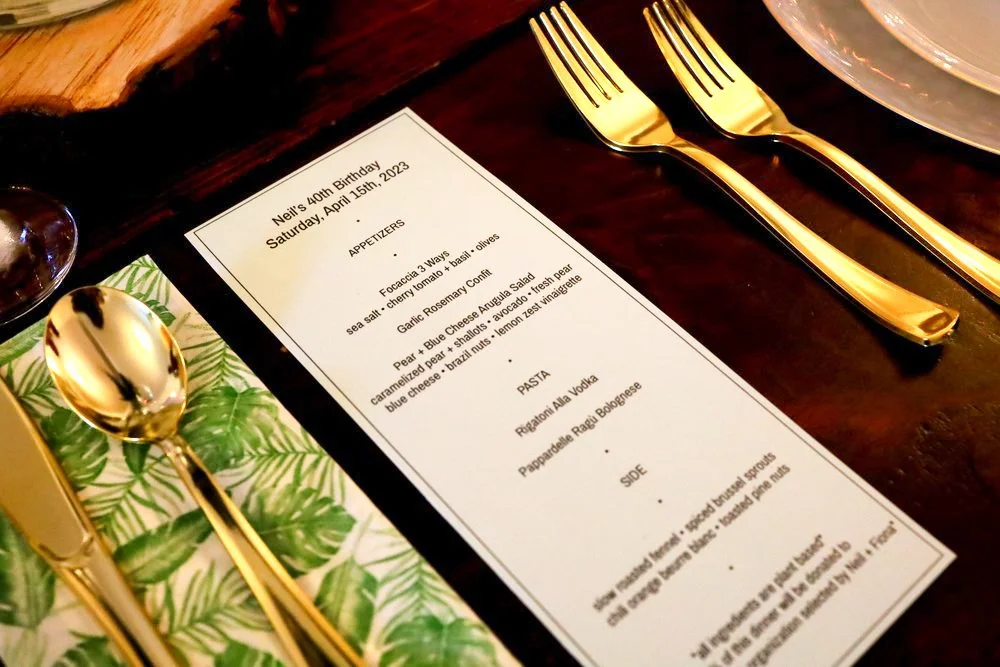 Neil's 40th Birthday
Saturday, April 15th, 2023
•
APPETIZERS
•
Focaccia 3 Ways
sea salt • cherry tomato + basil • olives
Garlic Rosemary Confit
Pear + Blue Cheese Arugula Salad
caramelized pear + shallots • avocado • fresh pear
blue cheese • brazil nuts • lemon zest vinaigrette
•
PASTA
Rigatoni Alla Vodka
Pappardelle Ragù Bolognese
•
SIDE
•
slow roasted fennel • spiced brussel sprouts
chili orange beurre blanc • toasted pine nuts
•
"all ingredients are plant based"
of this dinner will be donated to
organization selected by Neil + Fiona"